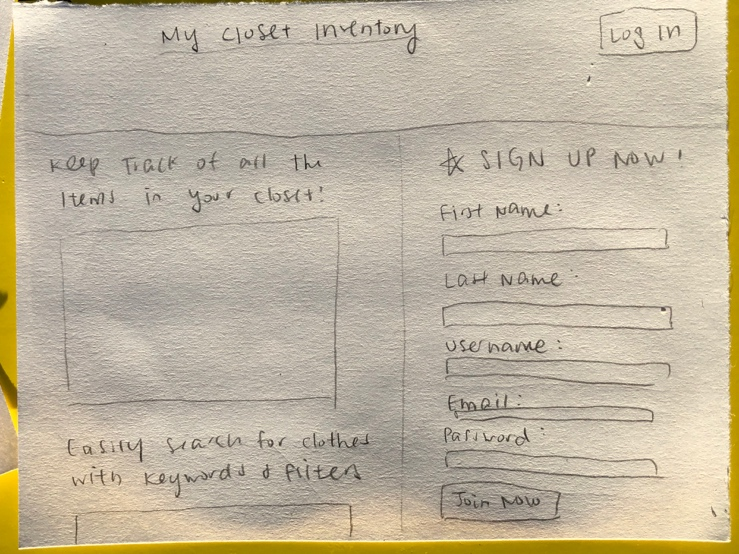 My closet Inventory
Log In
Keep Track of all the
Items in your closet!
Easily search for clothes
with keywords & filters
☆ SIGN UP NOW!
First Name:
Last Name:
Username:
Email:
Password:
Join Now